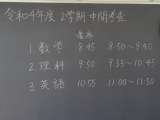 令和4年度 2学期 中間考査
着席
1. 数学 8:45 8:50〜9:40
2. 理科 9:50 9:55〜10:45
3. 英語 10:55 11:00〜11:50